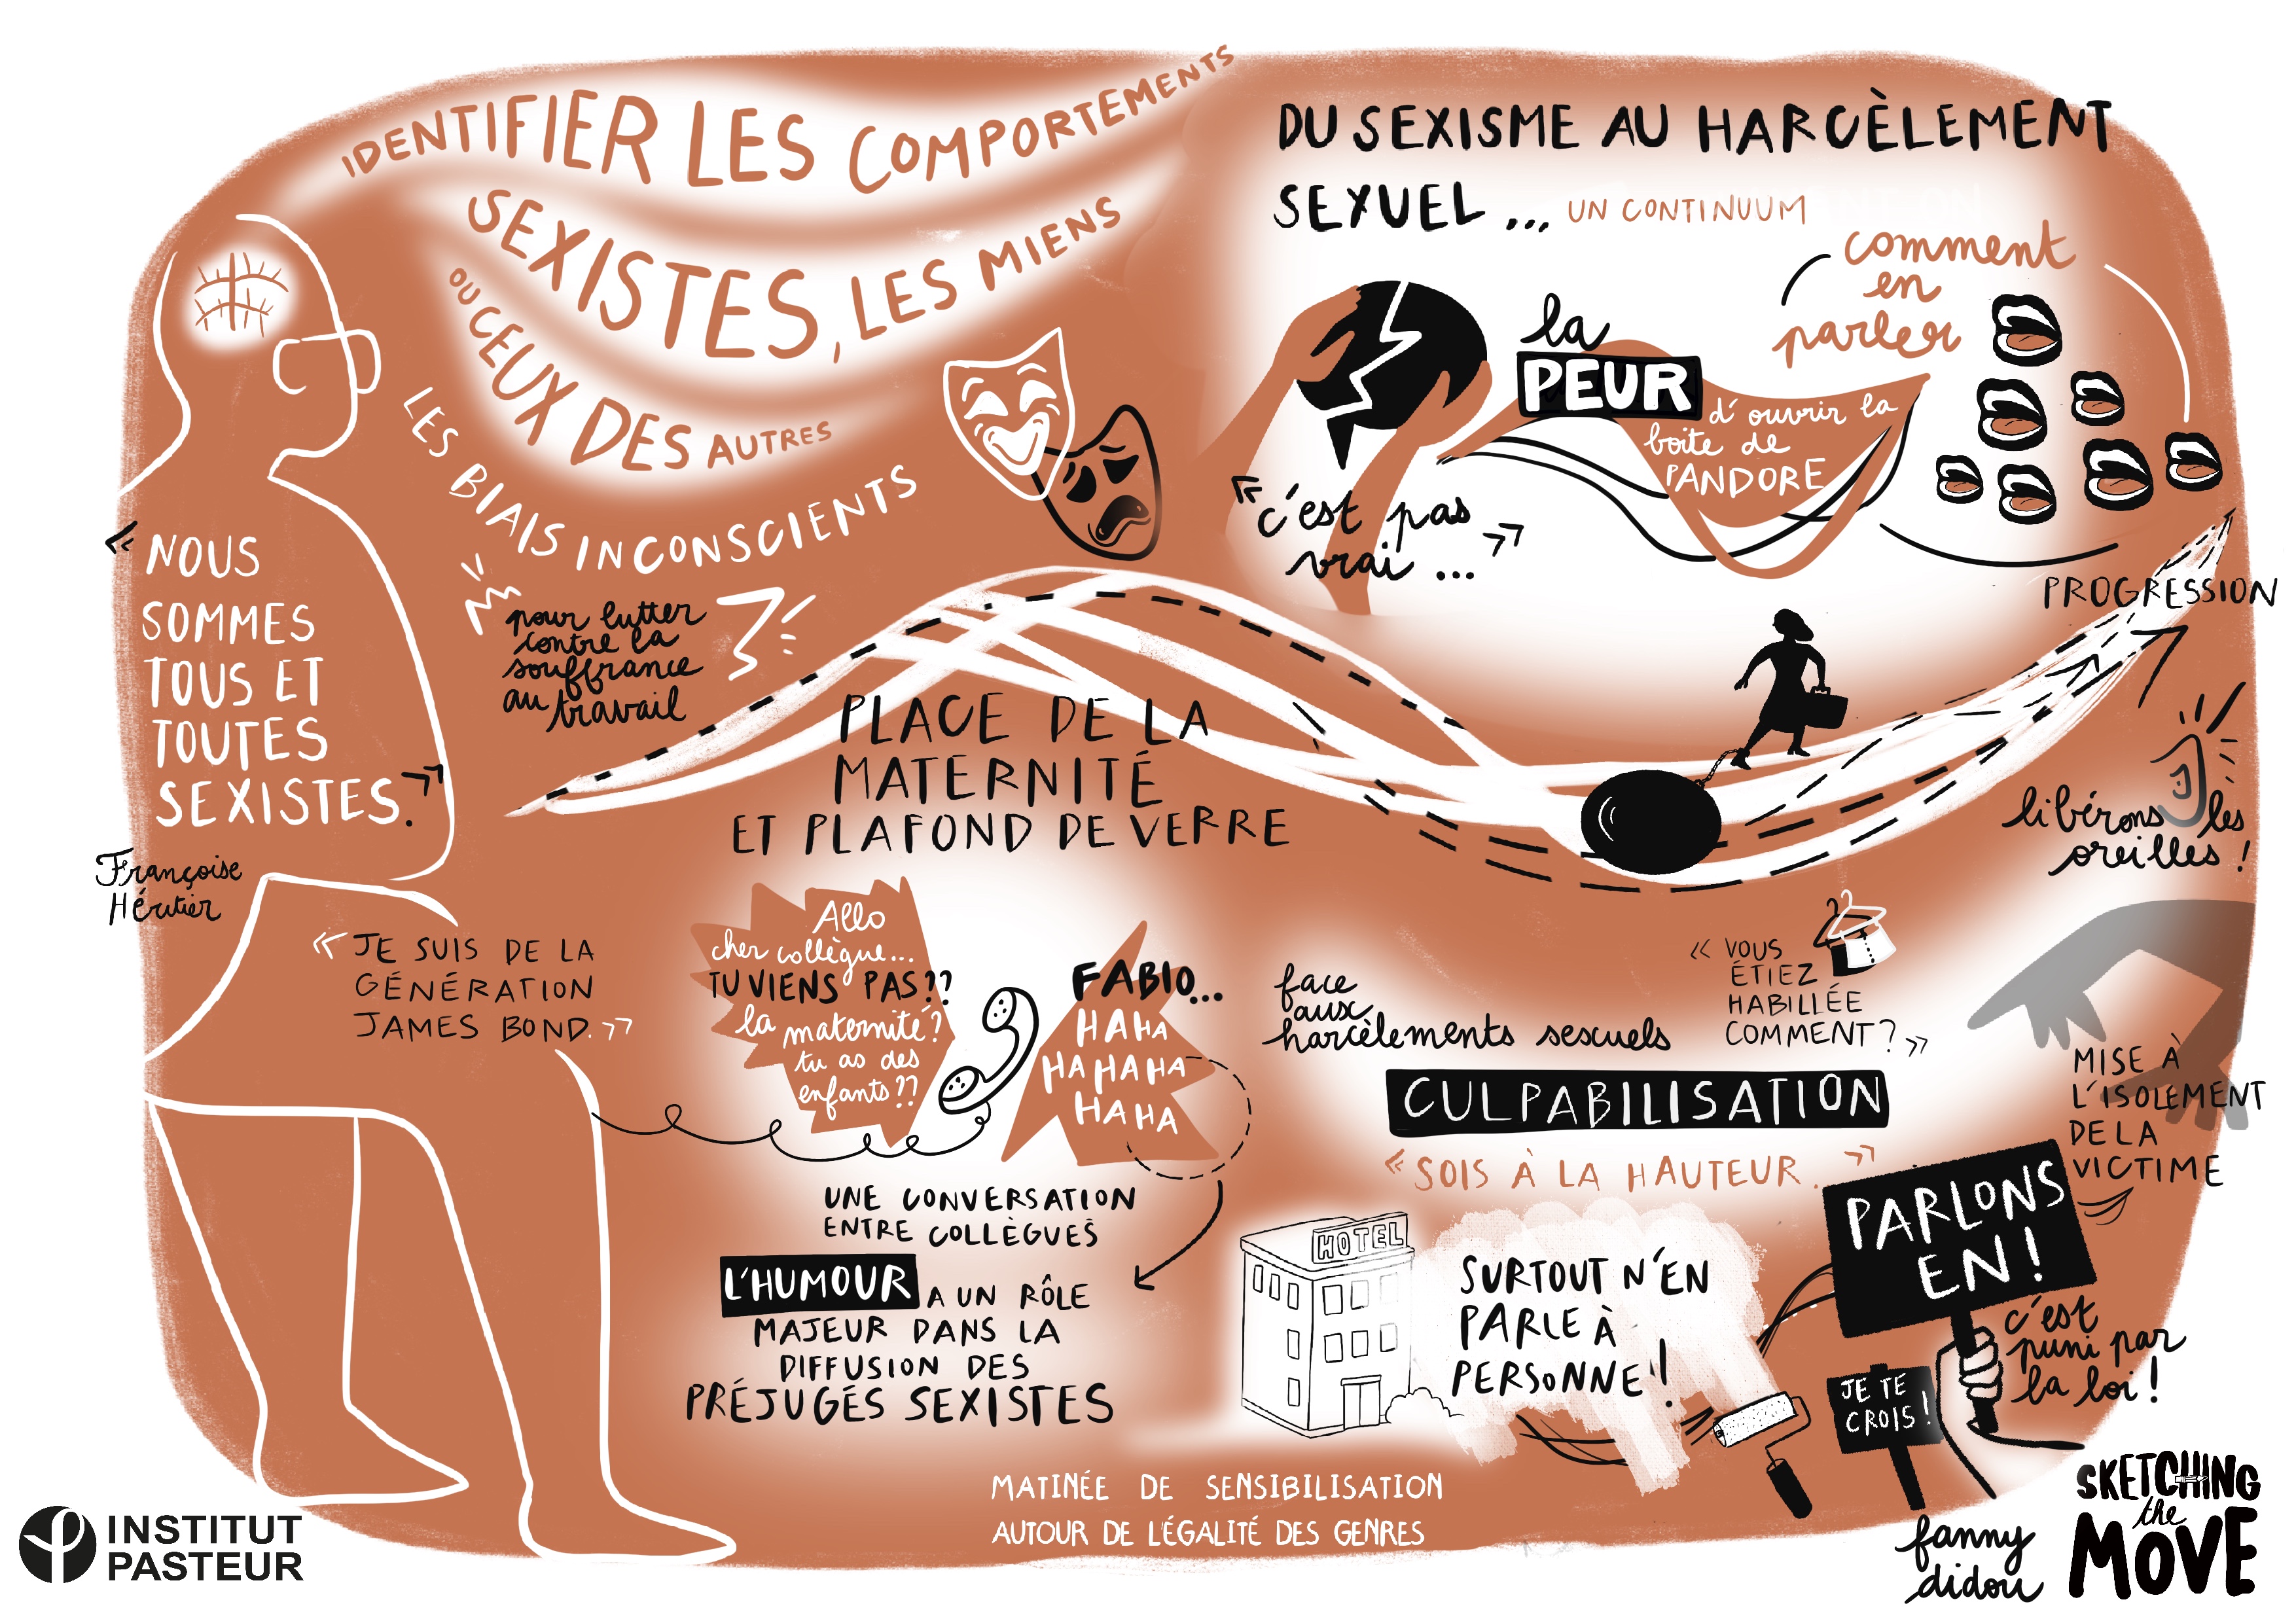 IDENTIFIER LES COMPORTEMENTS
SEXISTES, LES MIENS
OU CEUX DES AUTRES
LES BIAIS INCONSCIENTS
pour lutter
contre la
souffrance
au travail
« NOUS
SOMMES
TOUS ET
TOUTES
SEXISTES. »
Françoise
Héritier
« JE SUIS DE LA
GÉNÉRATION
JAMES BOND. »
DU SEXISME AU HARCÈLEMENT
SEXUEL ... UN CONTINUUM
comment
en
parler
la
PEUR
d'ouvrir la
boite de
PANDORE
« c'est pas
vrai ... »
PROGRESSION
libérons les
oreilles !
PLACE DE LA
MATERNITÉ
ET PLAFOND DE VERRE
Allo
cher collègue...
TU VIENS PAS??
la maternité?
tu as des
enfants??
FABIO...
HAHA
HAHAHA
HAHA
UNE CONVERSATION
ENTRE COLLÈGUES
L'HUMOUR A UN RÔLE
MAJEUR DANS LA
DIFFUSION DES
PRÉJUGÉS SEXISTES
face
aux
harcèlements sexuels
« VOUS
ÉTIEZ
HABILLÉE
COMMENT? »
CULPABILISATION
« SOIS À LA HAUTEUR. »
MISE À
L'ISOLEMENT
DE LA
VICTIME
HOTEL
SURTOUT N'EN
PARLE À
PERSONNE !
PARLONS
EN !
c'est
puni par
la loi !
JE TE
CROIS !
MATINÉE DE SENSIBILISATION
AUTOUR DE L'ÉGALITÉ DES GENRES
INSTITUT
PASTEUR
fanny
didou
SKETCHING
the
MOVE